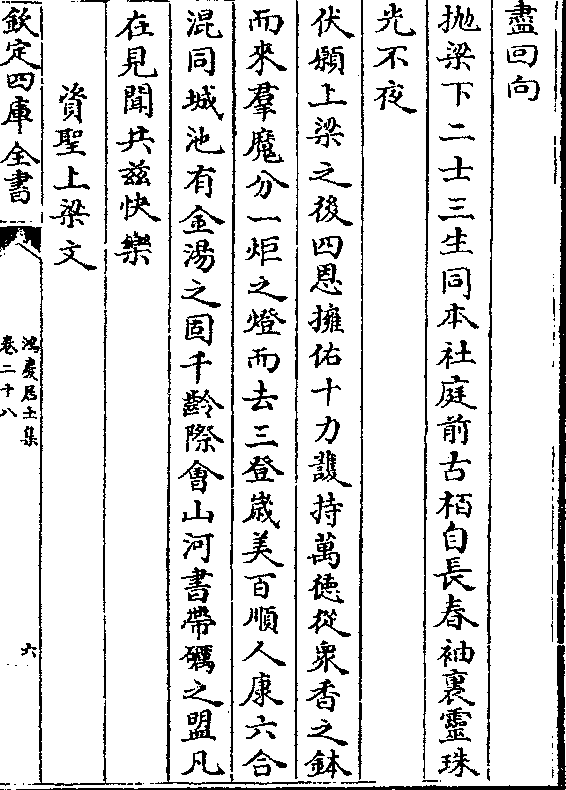 盡回向
拋梁下二士三生同本社庭前古栢自長春袖裏靈珠
光不夜
伏願上梁之後四恩擁佑十力護持萬徳從衆香之鉢
而來羣魔分一炬之燈而去三登歲美百順人康六合
混同城池有金湯之固千齡際會山河書帶礪之盟凡
在見聞共兹快樂
資聖上梁文
欽定四庫全書
鴻慶居士集
卷二十八
六